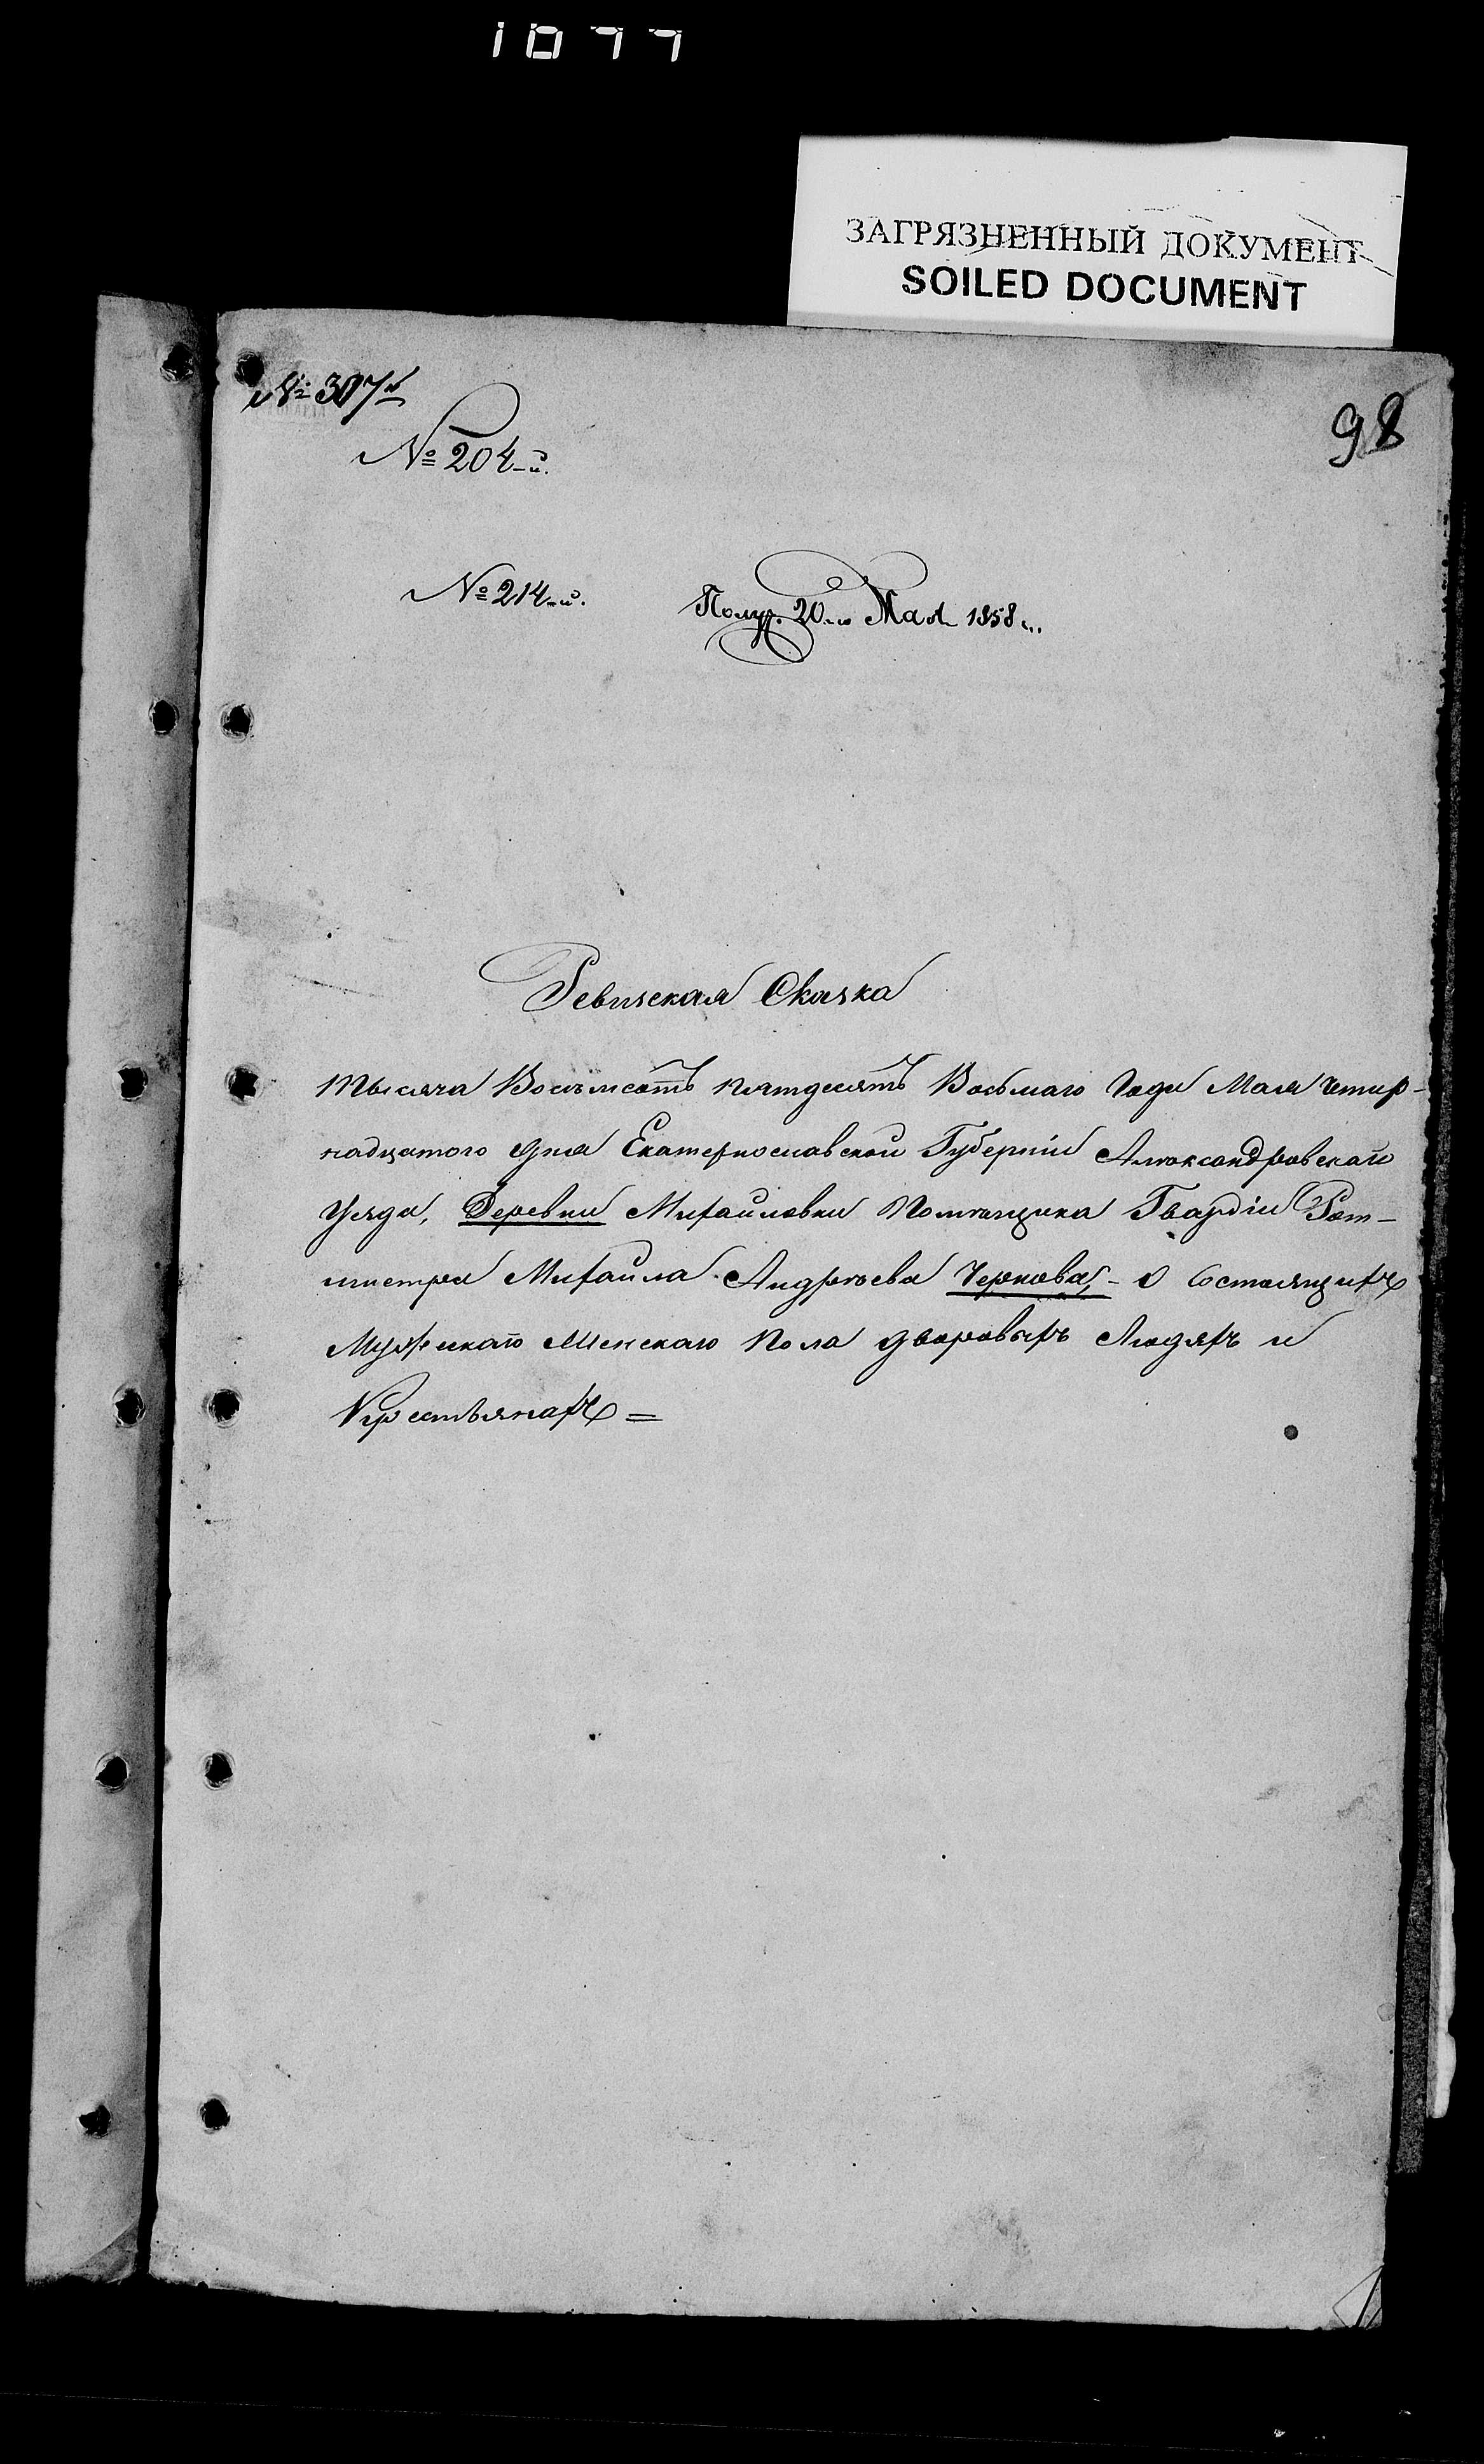 1077
ЗАГРЯЗНЕННЫЙ ДОКУМЕНТ
SOILED DOCUMENT
№ 307й
98
№ 204-й.
№ 214-й.
Получ. 20-го Мая 1858 г.
Ревизская Сказка
Тысяча Восемсотъ пятдесятъ Восьмаго Года Маія четир-
надцатого дня Екатеринославской Губерніи Александровскаго
Уезда, Деревни Михайловки Помѣщика Гвардіи Рот-
мистра Михаила Андрѣева Чернова, - О Состоящихъ
Мужескаго Женскаго Пола дворовыхъ Людяхъ и
Крестьянахъ =